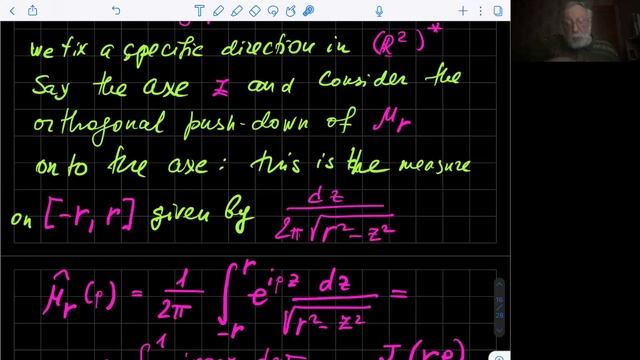 we fix a specific direction in (ℝ²)*
Say the axe z and consider the
orthogonal push-down of μ_r
on to the axe: this is the measure
on [-r, r] given by dz / 2π√(r²-z²)
μ̂_r(p) = 1/2π ∫_{-r}^{r} e^{ipz} dz / √(r²-z²) =
16
28